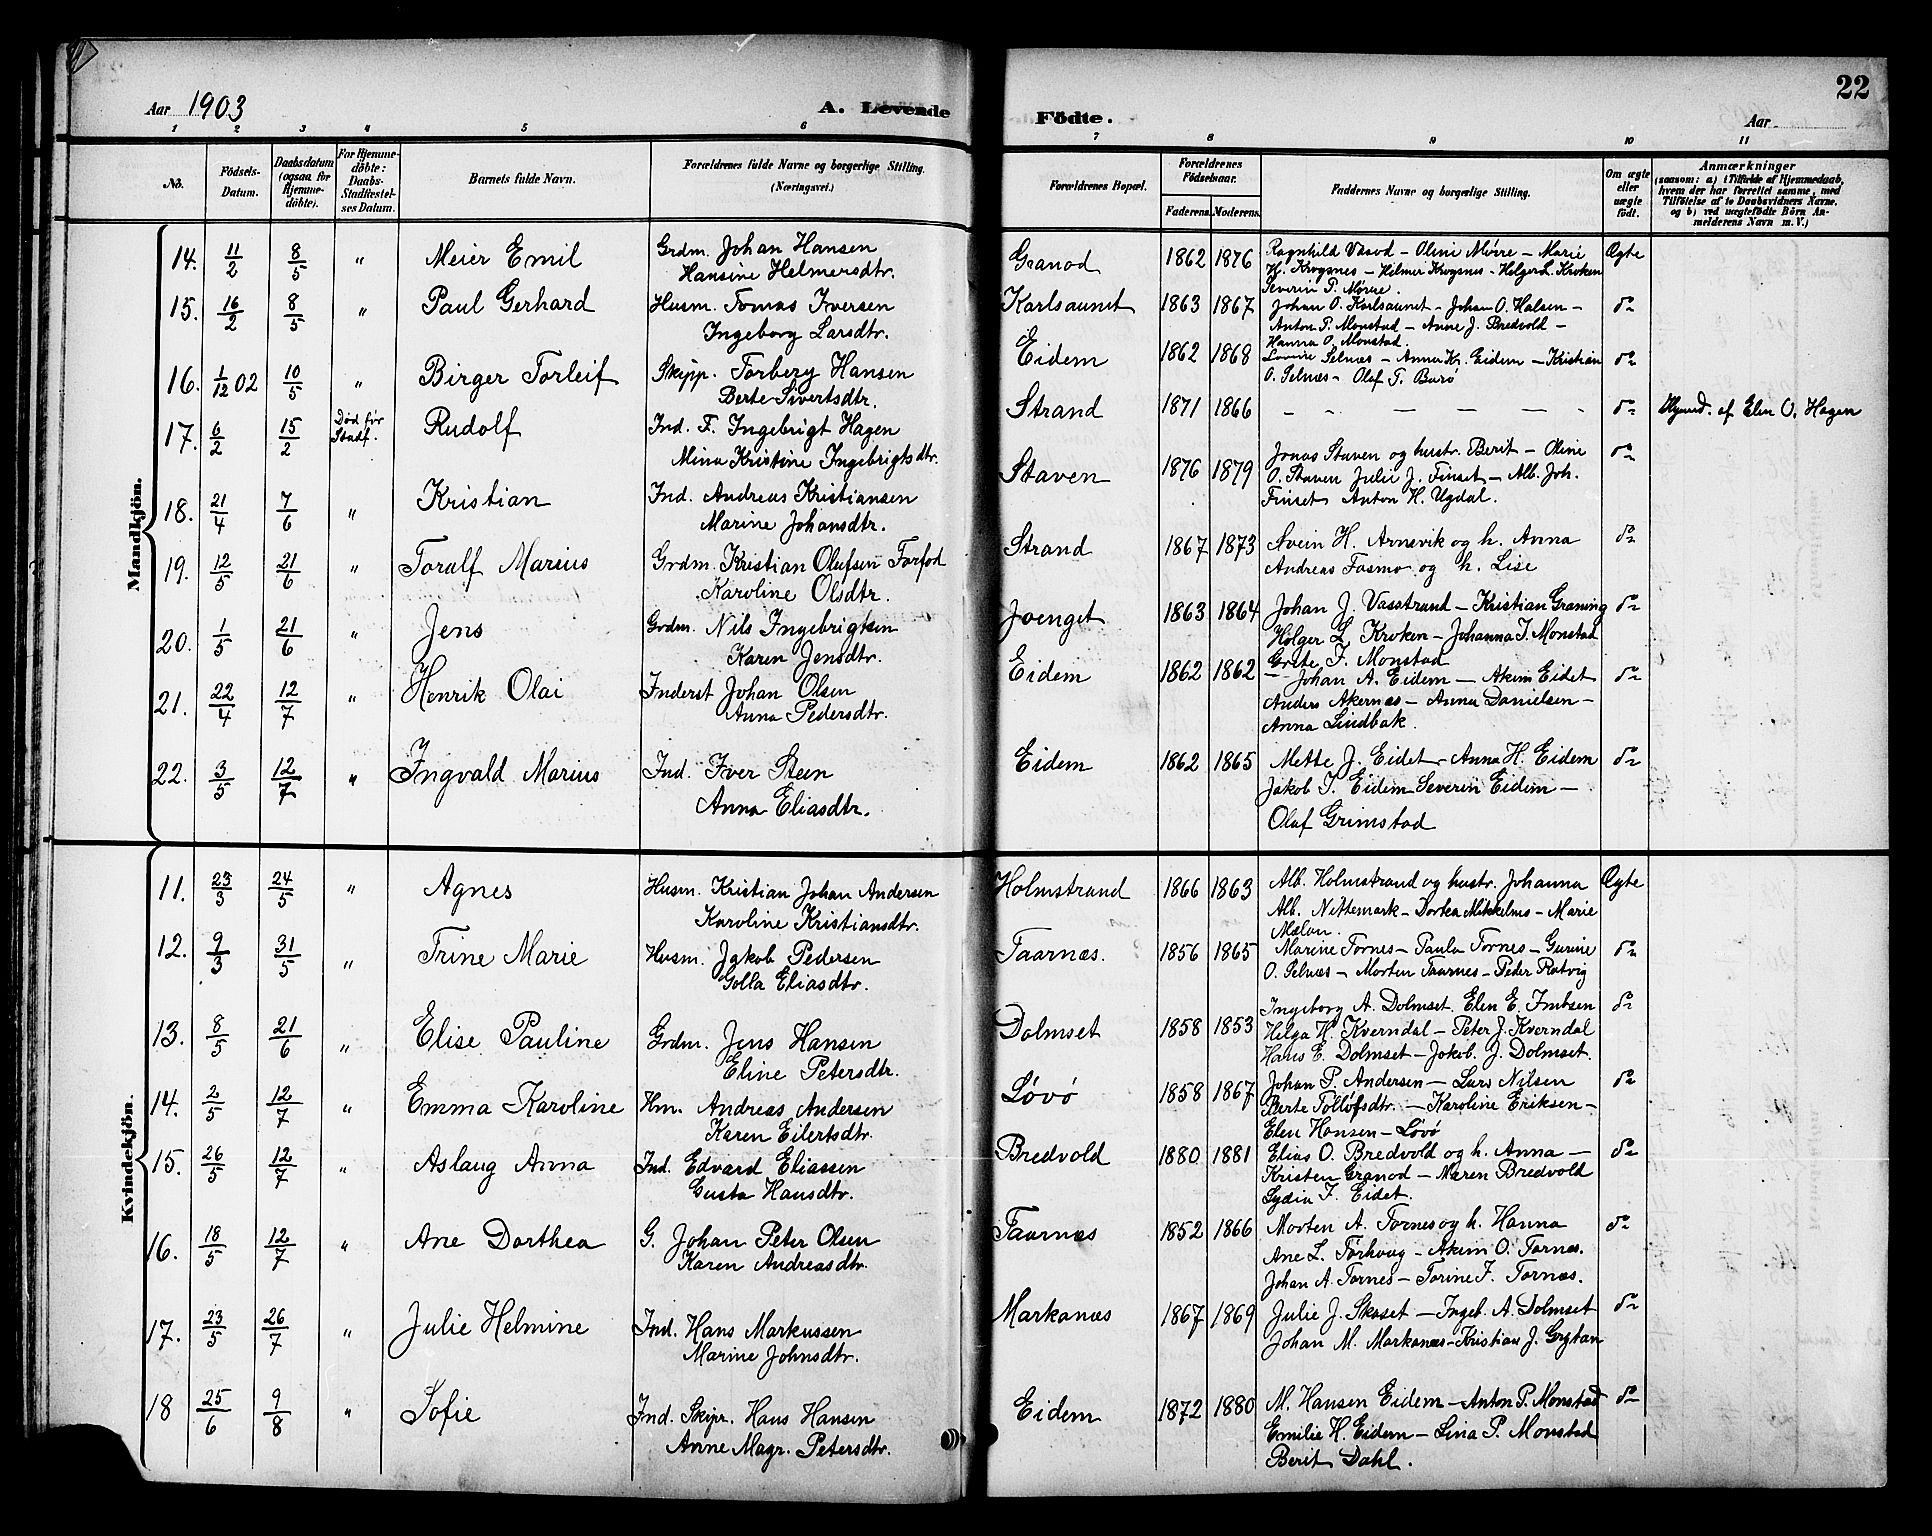 Aar 1903
A. Levende
Födte.
Aar
22
1 2 3 4 5 6 7 8 9 10 11
No.
Födsels-Datum.
Daabsdatum (ogsaa for Hjemme-döbte).
For Hjemme-döbte: Daabs-Stadfæstel-ses Datum.
Barnets fulde Navn.
Forældrenes fulde Navne og borgerlige Stilling. (Næringsvei.)
Forældrenes Bopæl.
Forældrenes Födselsaar.
Faderens. Moderens.
Faddernes Navne og borgerlige Stilling.
Om ægte eller uægte födt.
Anmærkninger
(saasom: a) i Tilfælde af Hjemmedaab, hvem der har forrettet samme, med Tilföielse af to Daabsvidners Navne, og b) ved uægtefödte Börn An-melderens Navn m. V.)
Mandkjön.
14. 11/2 8/5 " Meier Emil Grdm. Johan Hansen Granod 1862 1876 Ragnhild Vasod - Oline Møre - Marie Ægte
Hansine Helmersdtr. H. Krogsnes - Hilmer Krogsnes - Holger L. Kroken
Severin P. Møre.
15. 16/2 8/5 " Paul Gerhard Husm. Tomas Iversen Karlsaunet 1863 1867 Johan O. Karlsaunet - Johan O. Halsen - do
Ingeborg Larsdtr. Anton P. Monstad - Anne J. Bredvold -
Hanna O. Monstad.
16. 1/12 02 10/5 " Birger Torleif Skipp. Torberg Hansen Eidem 1862 1868 Selnæs - Anna Kr. Eidem - Kristian do
Berte Sivertsdtr. O. Selnæs - Olaf T. Burø
17. 6/2 15/2 Død før Stadf. Rudolf Ind. F. Ingebrigt Hagen Strand 1871 1866 - - - - - - do Hjemd. af Elen O. Hagen
Mina Kristine Ingebrigtsdtr.
18. 21/4 7/6 " Kristian Ind. Andreas Kristiansen Staven 1876 1879 Jonas Staven og hustr. Berit - Oline do
Marine Johansdtr. O. Staven Julie J. Finset - Alb. Joh.
Finset Anton H. Ugdal.
19. 12/5 21/6 " Toralf Marius Grdm. Kristian Olufsen Forfod Strand 1867 1873 Svein H. Arnevik og h. Anna do
Karoline Olsdtr. Andreas Fasmo og h. Lise
20. 1/5 21/6 " Jens Grdm. Nils Ingebrigtsen Joenget 1863 1864 Johan J. Vasstrand - Kristian Graning do
Karen Jensdtr. Holger L. Kroken - Johanna I. Monstad
Grete I. Monstad
21. 22/4 12/7 " Henrik Olai Inderst Johan Olsen Eidem 1862 1862 Johan A. Eidem - Akim Eidet do
Anna Pedersdtr. Anders Akernæs - Anna Danielsen -
Anna Lindbak.
22. 3/5 12/7 " Ingvald Marius Ind. Iver Steen Eidem 1862 1865 Mette J. Eidet - Anna H. Eidem do
Anna Eliasdtr. Jakob I. Eidem Severin Eidem -
Olaf Grimstad
Kvindekjön.
11. 23/3 24/5 " Agnes Husm. Kristian Johan Andersen Holmstrand 1866 1863 Alb. Holmstrand og hustr. Johanna Ægte
Karoline Kristiansdtr. Alb. Nettemark - Dortea Mikkelms - Marie
Mælan.
12. 9/3 31/5 " Trine Marie Husm. Jakob Pedersen Taarnæs. 1856 1865 Marine Tornes - Paula Tornes - Gurine do
Golla Eliasdtr. O. Selnæs - Morten Taarnes - Peder Ratvig
13. 8/5 21/6 " Elise Pauline Grdm. Jens Hansen Dolmset 1858 1853 Ingeborg A. Dolmset. Elen E. Imbsen do
Eline Petersdtr. Helga H. Kverndal - Peter J. Kverndal
Hans E. Dolmset - Jakob. J. Dolmset.
14. 2/5 12/7 " Emma Karoline Hm. Andreas Andersen Løvø 1858 1867 Johan P. Andersen - Lars Nilsen do
Karen Eilertsdtr. Berte Tollofsdtr. - Karoline Eriksen -
Elen Hansen - Løvø
15. 26/5 12/7 " Aslaug Anna Ind. Edvard Eliassen Bredvold 1880 1881 Elias O. Bredvold og h. Anna - do
Gusta Hansdtr. Kristen Granod - Maren Bredvold
Lydia F. Eidet.
16. 18/5 12/7 " Ane Dorthea G. Johan Peter Olsen Taarnæs 1852 1866 Morten A. Tornes og h. Hanna do
Karen Andreasdtr. Ane L. Torhoug - Akim O. Tornæs.
Johan A. Tornes - Torine J. Tornæs.
17. 23/5 26/7 " Julie Helmine Ind. Hans Markussen Markanæs 1867 1869 Julie J. Skaset - Ingeb. A. Dolmset do
Marine Johnsdtr. Johan M. Markanæs - Kristian J. Grytan
18 25/6 9/8 " Sofie Ind. Skipr. Hans Hansen Eidem 1872 1880 M. Hansen Eidem - Anton P. Monstad do
Anne Magr. Petersdtr. Emilie H. Eidem - Lina P. Monstad
Berit Dahl.